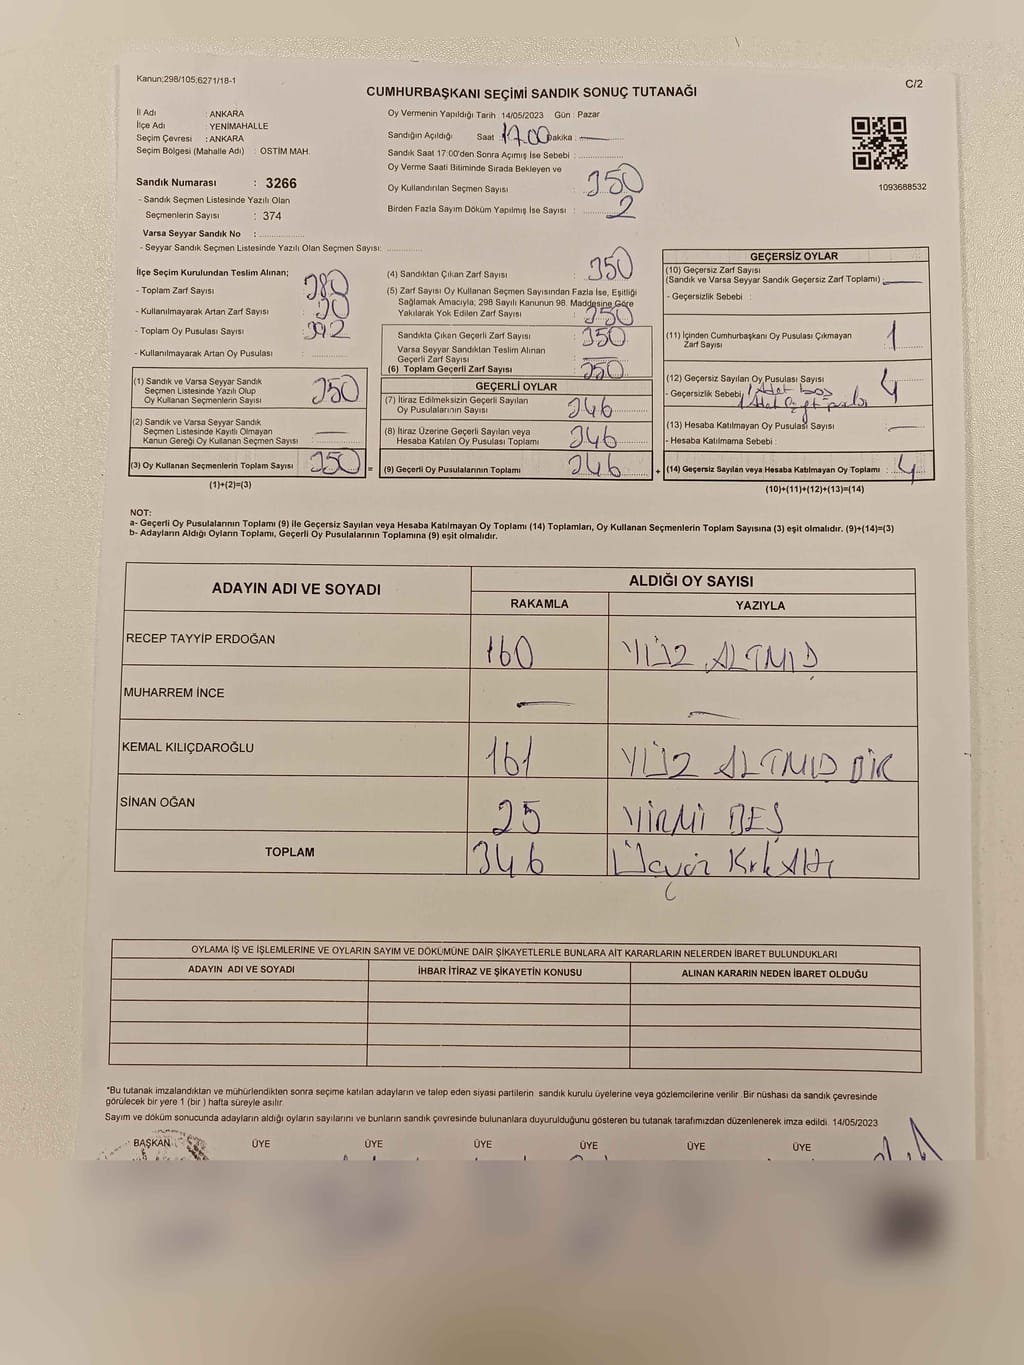 Kanun;298/105;6271/18-1
C/2
CUMHURBAŞKANI SEÇİMİ SANDIK SONUÇ TUTANAĞI
İl Adı : ANKARA
İlçe Adı : YENİMAHALLE
Seçim Çevresi : ANKARA
Seçim Bölgesi (Mahalle Adı) : OSTİM MAH.
Sandık Numarası : 3266
- Sandık Seçmen Listesinde Yazılı Olan
Seçmenlerin Sayısı : 374
Varsa Seyyar Sandık No :
- Seyyar Sandık Seçmen Listesinde Yazılı Olan Seçmen Sayısı:
Oy Vermenin Yapıldığı Tarih : 14/05/2023 Gün : Pazar
Sandığın Açıldığı Saat : 17.00 Dakika :
Sandık Saat 17:00'den Sonra Açımış İse Sebebi :
Oy Verme Saati Bitiminde Sırada Bekleyen ve
Oy Kullandırılan Seçmen Sayısı : 350
Birden Fazla Sayım Döküm Yapılmış İse Sayısı : 2
1093688532
İlçe Seçim Kurulundan Teslim Alınan;
- Toplam Zarf Sayısı : 380
- Kullanılmayarak Artan Zarf Sayısı : 30
- Toplam Oy Pusulası Sayısı : 392
- Kullanılmayarak Artan Oy Pusulası :
(1) Sandık ve Varsa Seyyar Sandık
Seçmen Listesinde Yazılı Olup
Oy Kullanan Seçmenlerin Sayısı : 350
(2) Sandık ve Varsa Seyyar Sandık
Seçmen Listesinde Kayıtlı Olmayan
Kanun Gereği Oy Kullanan Seçmen Sayısı : —
(3) Oy Kullanan Seçmenlerin Toplam Sayısı : 350 =
(1)+(2)=(3)
(4) Sandıktan Çıkan Zarf Sayısı : 350
(5) Zarf Sayısı Oy Kullanan Seçmen Sayısından Fazla İse, Eşitliği
Sağlamak Amacıyla; 298 Sayılı Kanunun 98. Maddesine Göre
Yakılarak Yok Edilen Zarf Sayısı : 350
Sandıkta Çıkan Geçerli Zarf Sayısı : 350
Varsa Seyyar Sandıktan Teslim Alınan
Geçerli Zarf Sayısı : —
(6) Toplam Geçerli Zarf Sayısı : 350
GEÇERLİ OYLAR
(7) İtiraz Edilmeksizin Geçerli Sayılan
Oy Pusulalarının Sayısı : 346
(8) İtiraz Üzerine Geçerli Sayılan veya
Hesaba Katılan Oy Pusulası Toplamı : 346
(9) Geçerli Oy Pusulalarının Toplamı : 346 +
GEÇERSİZ OYLAR
(10) Geçersiz Zarf Sayısı
(Sandık ve Varsa Seyyar Sandık Geçersiz Zarf Toplamı) : —
- Geçersizlik Sebebi :
(11) İçinden Cumhurbaşkanı Oy Pusulası Çıkmayan
Zarf Sayısı : 1
(12) Geçersiz Sayılan Oy Pusulası Sayısı : 4
- Geçersizlik Sebebi : 1 Adet boş
(13) Hesaba Katılmayan Oy Pusulası Sayısı : —
- Hesaba Katılmama Sebebi :
(14) Geçersiz Sayılan veya Hesaba Katılmayan Oy Toplamı : 4
(10)+(11)+(12)+(13)=(14)
NOT:
a- Geçerli Oy Pusulalarının Toplamı (9) ile Geçersiz Sayılan veya Hesaba Katılmayan Oy Toplamı (14) Toplamları, Oy Kullanan Seçmenlerin Toplam Sayısına (3) eşit olmalıdır. (9)+(14)=(3)
b- Adayların Aldığı Oyların Toplamı, Geçerli Oy Pusulalarının Toplamına (9) eşit olmalıdır.
ADAYIN ADI VE SOYADI
ALDIĞI OY SAYISI
RAKAMLA YAZIYLA
RECEP TAYYİP ERDOĞAN 160 YÜZ ALTMIŞ
MUHARREM İNCE — —
KEMAL KILIÇDAROĞLU 161 YÜZ ALTMIŞ BİR
SİNAN OĞAN 25 YİRMİ BEŞ
TOPLAM 346 Üçyüz Kırk Altı
OYLAMA İŞ VE İŞLEMLERİNE VE OYLARIN SAYIM VE DÖKÜMÜNE DAİR ŞİKAYETLERLE BUNLARA AİT KARARLARIN NELERDEN İBARET BULUNDUKLARI
ADAYIN ADI VE SOYADI İHBAR İTİRAZ VE ŞİKAYETİN KONUSU ALINAN KARARIN NEDEN İBARET OLDUĞU
*Bu tutanak imzalandıktan ve mühürlendikten sonra seçime katılan adayların ve talep eden siyasi partilerin sandık kurulu üyelerine veya gözlemcilerine verilir. Bir nüshası da sandık çevresinde
görülecek bir yere 1 (bir ) hafta süreyle asılır.
Sayım ve döküm sonucunda adayların aldığı oyların sayılarını ve bunların sandık çevresinde bulunanlara duyurulduğunu gösteren bu tutanak tarafımızdan düzenlenerek imza edildi. 14/05/2023
BAŞKAN ÜYE ÜYE ÜYE ÜYE ÜYE ÜYE